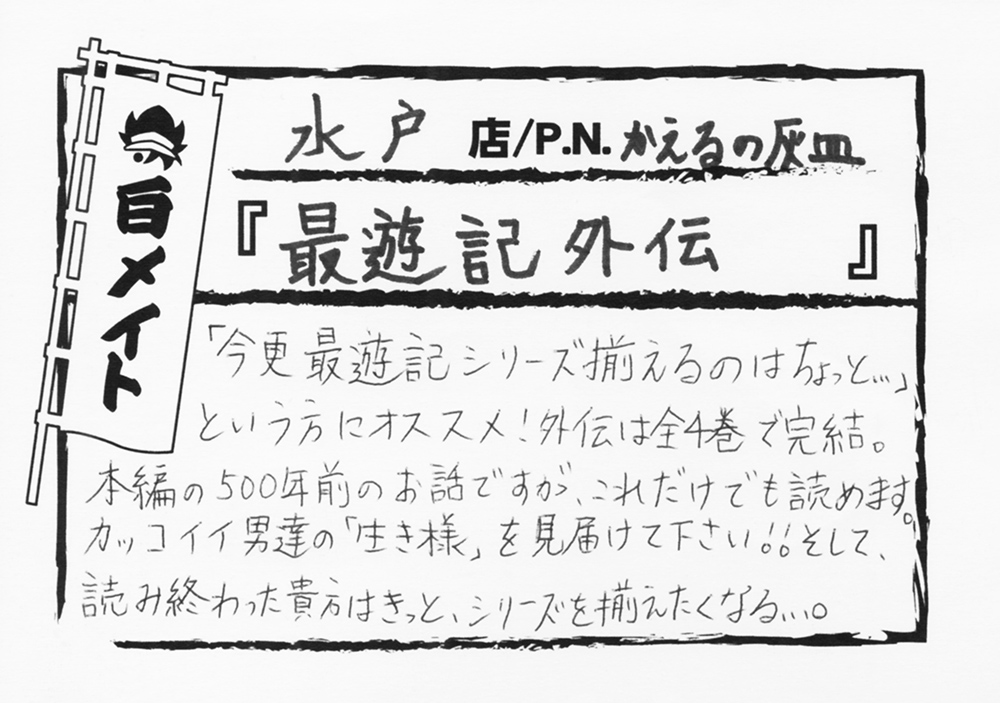 水戸 店/P.N. かえるの灰皿
目メイト
『最遊記外伝 』
「今更 最遊記シリーズ揃えるのはちょっと…」
という方にオススメ!外伝は全4巻で完結。
本編の500年前のお話ですが、これだけでも読めます。
カッコイイ男達の「生き様」を見届けて下さい!!そして、
読み終わった貴方はきっと、シリーズを揃えたくなる…。